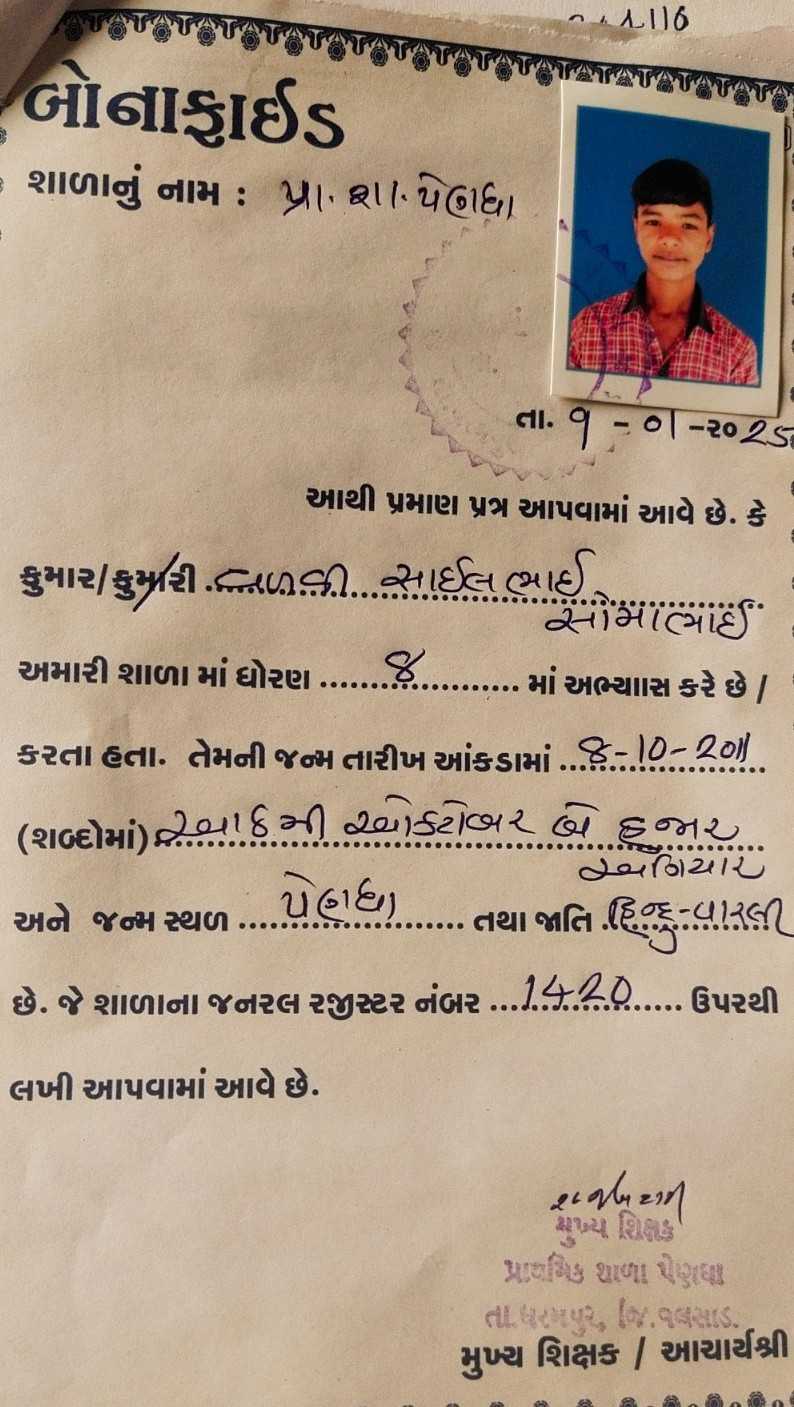 બોનાફાઈડ
શાળાનું નામ : પ્રા. શા. પેણધા
તા. ૧ - ૦૧ -૨૦૨૫
આથી પ્રમાણ પ્રત્ર આપવામાં આવે છે. કે
કુમાર/કુમારી સાઈલભાઈ
સોમાભાઈ
અમારી શાળા માં ધોરણ ....૪.... માં અભ્યાાસ કરે છે /
કરતા હતા. તેમની જન્મ તારીખ આંકડામાં ...૪-10-2011
(શબ્દોમાં) આઠમી ઓકટોબર બે હજાર
અગિયાર
અને જન્મ સ્થળ ....પેણધા.... તથા જાતિ હિન્દુ-વારલી
છે. જે શાળાના જનરલ રજીસ્ટર નંબર ...1420... ઉપરથી
લખી આપવામાં આવે છે.
મુખ્ય શિક્ષક
પ્રાથમિક શાળા પેણધા
તા.ધરમપુર, જિ.વલસાડ.
મુખ્ય શિક્ષક / આચાર્યશ્રી